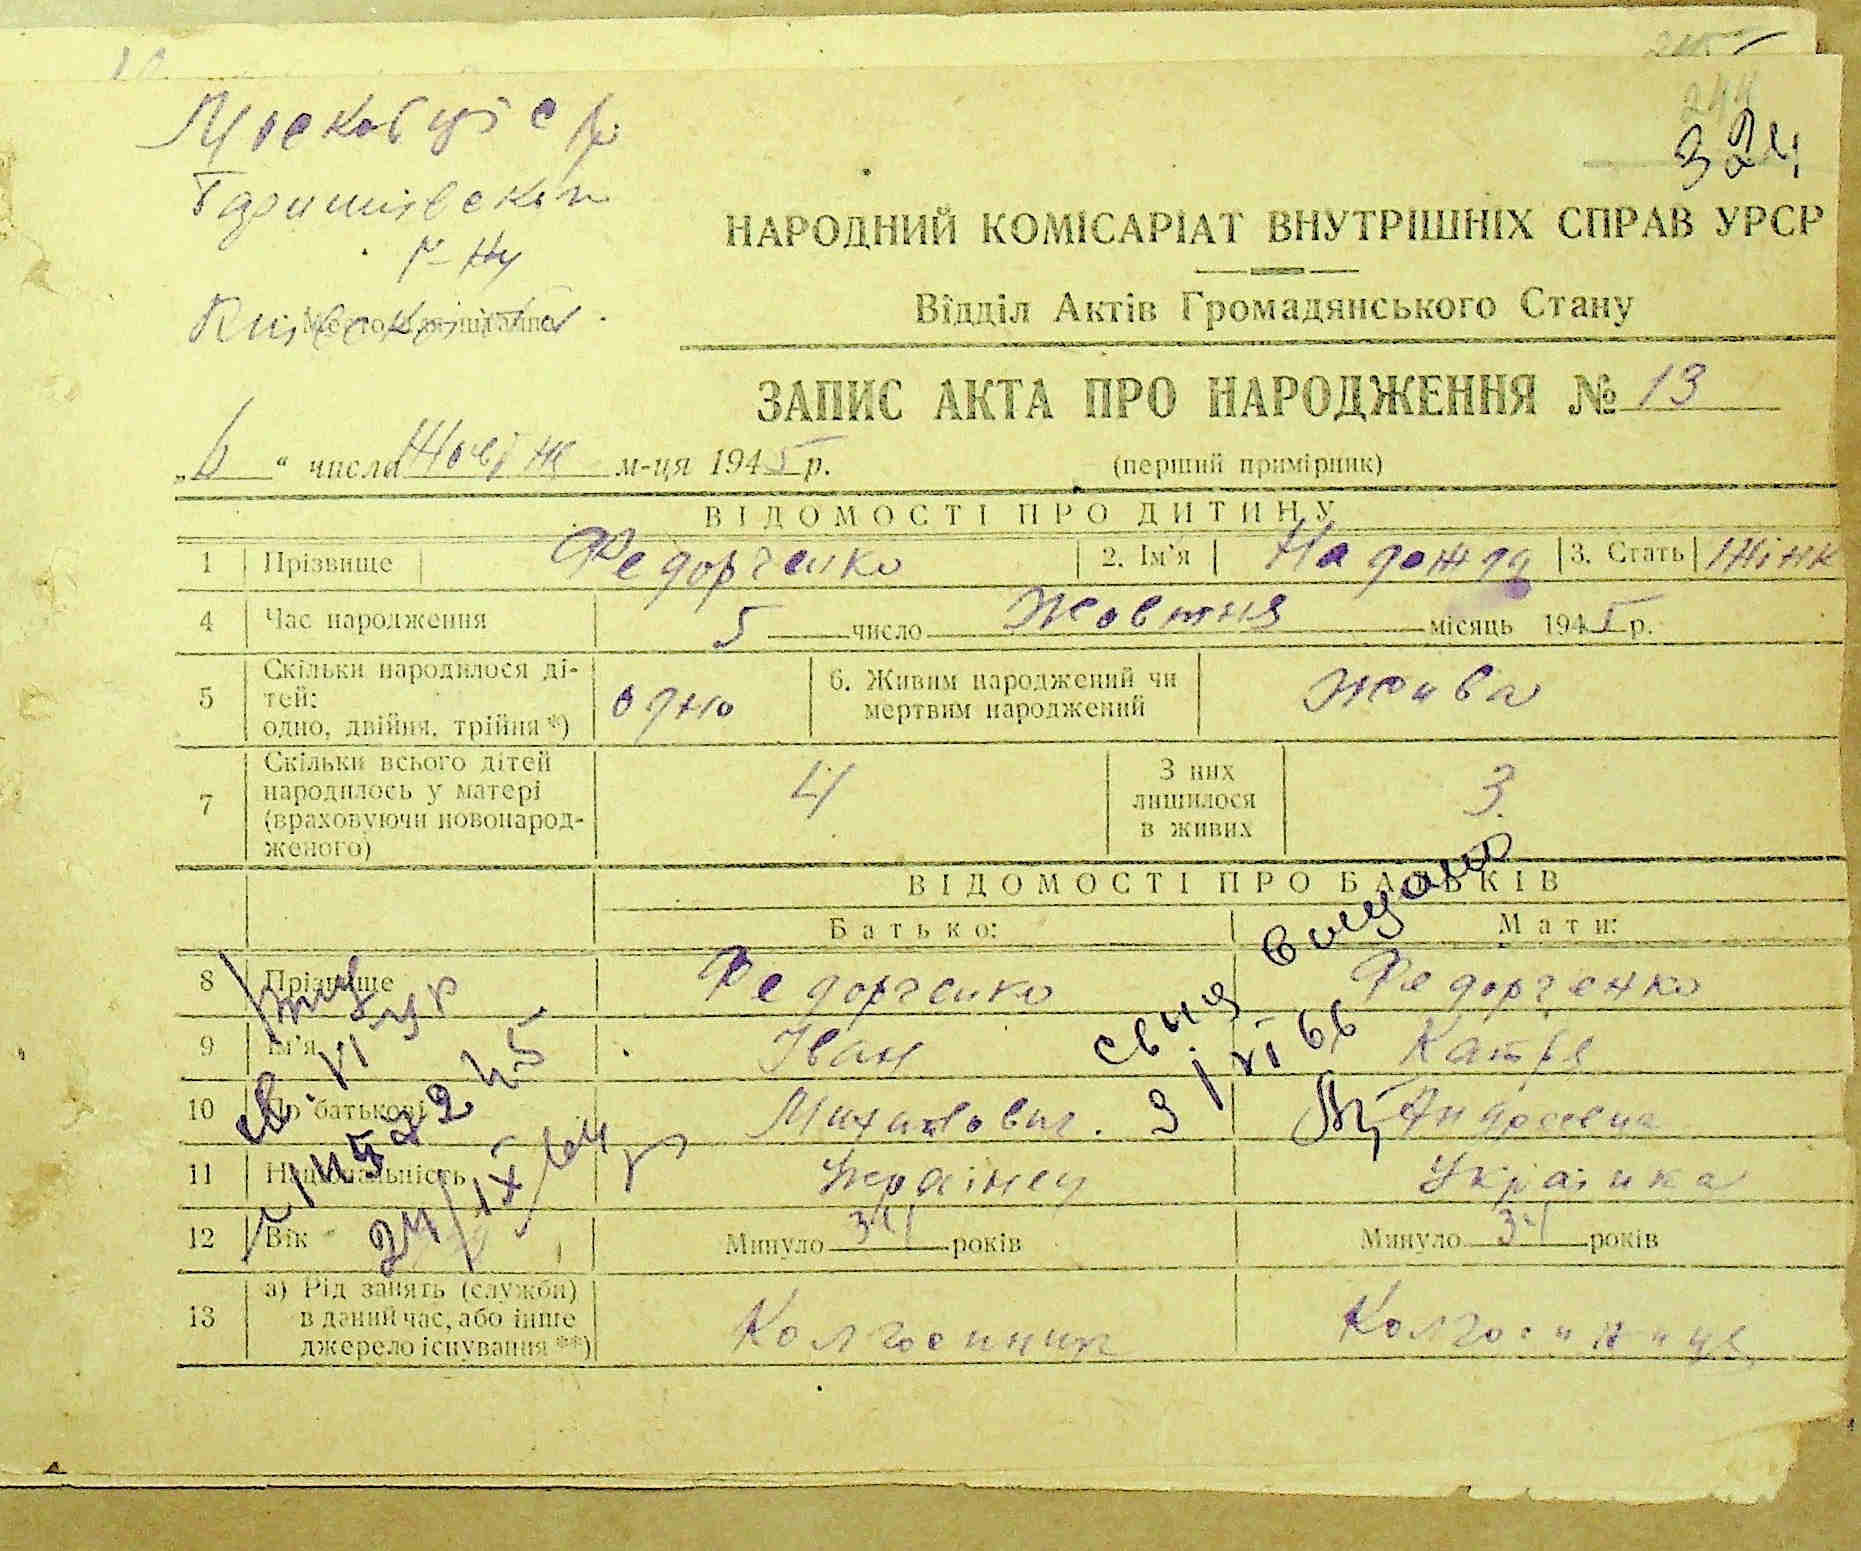 244
324
Московці с р
Баришівськ
р-ну
Київської
НАРОДНИЙ КОМІСАРІАТ ВНУТРІШНІХ СПРАВ УРСР
Відділ Актів Громадянського Стану
ЗАПИС АКТА ПРО НАРОДЖЕННЯ № 13
„6“ числа Жовтн м-ця 1945 р. (перший примірник)
ВІДОМОСТІ ПРО ДИТИНУ
1 Прізвище Федорченко 2. Ім'я Надожда 3. Стать Жінк
4 Час народження 5 число Жовтня місяць 1945 р.
5 Скільки народилося ді-
тей:
одно, двійня, трійня*) одно 6. Живим народжений чи
мертвим народжений жива
7 Скільки всього дітей
народилось у матері
(враховуючи новонарод-
женого) 4 З них
лишилося
в живих 3
ВІДОМОСТІ ПРО БАТЬКІВ
Батько: Мати:
8 Прізвище Федорченко Федорченко
9 Ім'я Іван Катря
10 По батькові Михайлович Андреевна
11 Національність Українец Українка
12 Вік Минуло 34 років Минуло 34 років
13 а) Рід занять (служби)
в даний час, або інше
джерело існування**) Колгоспник Колгоспниця
24/IX/64 р
9/VI 66